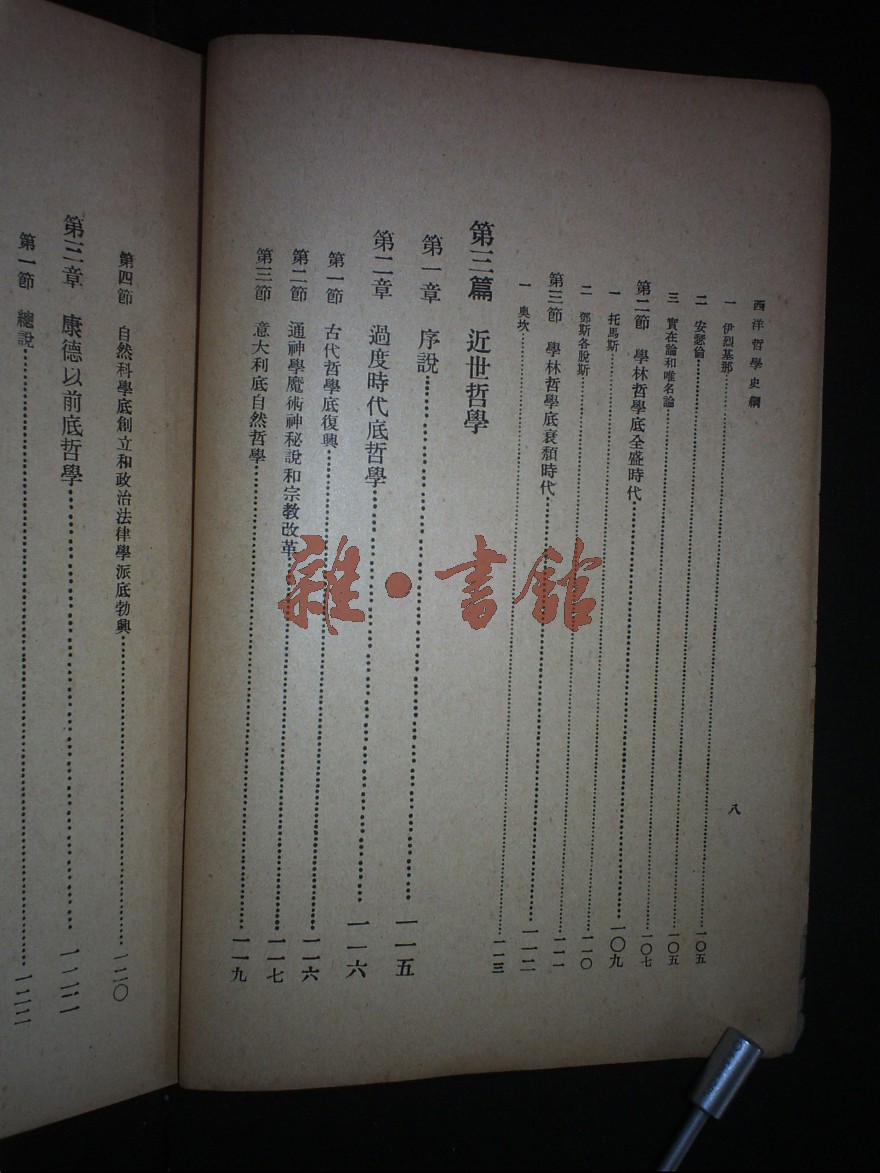 西洋哲學史綱
八
一 伊烈基那……一〇五
二 安瑟倫……一〇五
三 實在論和唯名論……一〇七
第二節 學林哲學底全盛時代……一〇九
一 托馬斯……一一〇
二 鄧斯各脫斯……一一一
第三節 學林哲學底衰頹時代……一一二
一 奧坎……一一三
第三篇 近世哲學
第一章 序說……一一五
第二章 過度時代底哲學……一一六
第一節 古代哲學底復興……一一六
第二節 通神學魔術神秘說和宗教改革……一一七
第三節 意大利底自然哲學……一一九
第四節 自然科學底創立和政治法律學派底勃興……一二〇
第三章 康德以前底哲學……一二二
第一節 總說……一二二
雜·書館